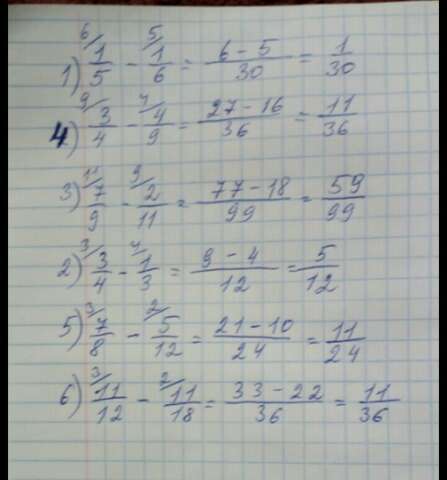 1) ⁶/ 1/5 - ⁵/ 1/6 = (6 - 5)/30 = 1/30
4) ⁹/ 3/4 - ⁴/ 4/9 = (27 - 16)/36 = 11/36
3) ¹¹/ 7/9 - ⁹/ 2/11 = (77 - 18)/99 = 59/99
2) ³/ 3/4 - ⁴/ 1/3 = (9 - 4)/12 = 5/12
5) ³/ 7/8 - ²/ 5/12 = (21 - 10)/24 = 11/24
6) ³/ 11/12 - ²/ 11/18 = (33 - 22)/36 = 11/36